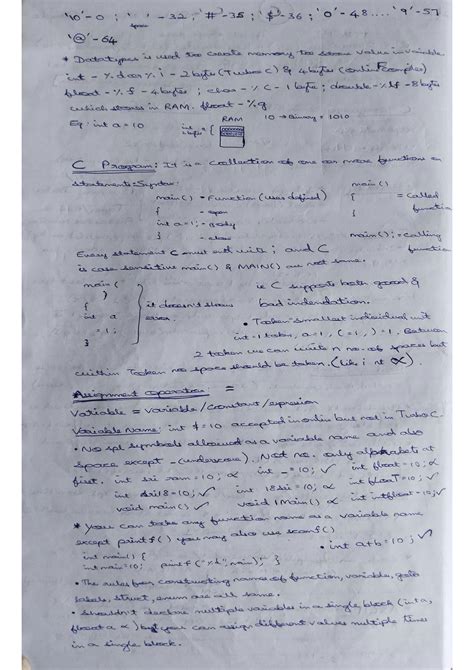 '\0'-0 ; ' '-32 ; '#'-35 ; '$'-36 ; '0'-48 .... '9'-57
space
'@'-64
* Datatypes is used too create memory too store value in variable
int - % d or % i - 2 byte (Turbo C) & 4 bytes (online compiler)
float - % f - 4 bytes ; char - % c - 1 byte ; double - % lf - 8 bytes
which stores in RAM. float - % g.
Eg: int a = 10
RAM
10 → Binary = 1010
int
2 bytes
C Program: It is a collection of one or more functions or
statements. Syntax:
main() - Function (user defined)
{ - open
int a = 1; - Body
} - close
main()
{ = Called
} function
main(); = calling
function
Every statement C must end with ; and C
is case sensitive main() & MAIN() are not same.
main (
)
{
int a
= 1;
}
it doesn't shows
error.
ie C supports both good &
bad indendation.
• Tooken - smallest individual unit
int - 1 token, a = 1, ( = 1, ) = 1. Between
2 tooken we can write n no. of spaces but
within Tooken no space should be taken. (like i nt ∝)
Assignment operation: =
Variable = variable / constant / expression
Variable Name: int $ = 10 accepted in online but not in Turbo C.
• No spl symbols allowed as a variable name and also
space except - (underscore). Not no. only alphabets at
first. int sri ram = 10; ∝ int _ = 10; ✓ int float = 10; ∝
int sri18 = 10; ✓ int 18sri = 10; ∝ int floaT = 10; ✓
void main() ✓ void 1Main() ∝ int intfloat = 10; ✓
* You can take any function name as a variable name
except printf() you may also use scanf()
int main() {
int main = 10; printf ("%d", main); }
• int a+b = 10 ; ✓
• The rules for constructing names of function, variables, goto
labels, struct, enum are all same.
• Shouldn't declare multiple variables in a single block (int a,
float a ∝) but you can assign different values multiple times
in a single block.